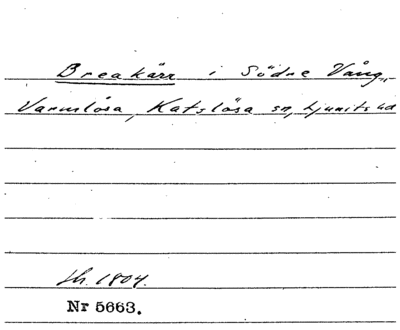 Breakärr i Södre Vång,
Varmlösa, Katslösa sn, Ljunits hd
sh. 1804.
Nr 5663.